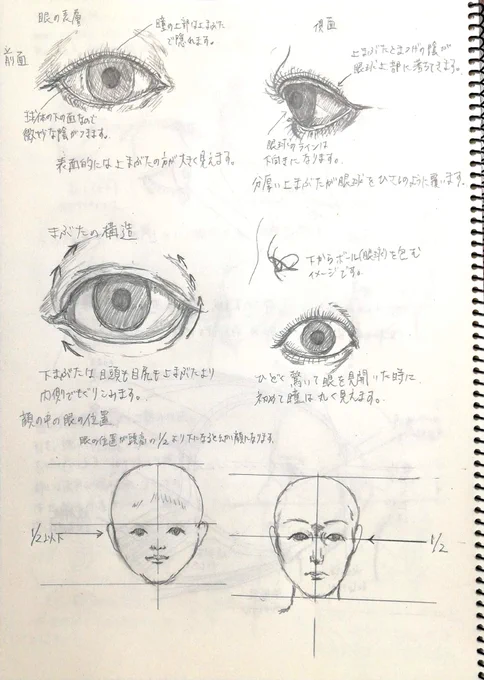 眼の表層
前面
瞳の上部は上まぶた
で隠れます。
球体の下の面なので
微妙な陰がつきます。
表面的には上まぶたの方が大きく見えます。
側面
上まぶたとまつげの陰が
眼球上部に落ちてきます。
眼球のラインは
下向きになります。
分厚い上まぶたが眼球をひさしのように覆います。
まぶたの構造
下からボール(眼球)を包む
イメージです。
下まぶたは目頭も目尻も上まぶたより
内側でもぐりこみます。
ひどく驚いて眼を見開いた時に
初めて瞳は丸く見えます。
顔の中の眼の位置
眼の位置が頭高の1/2より下になると幼い顔になります。
1/2以下
1/2